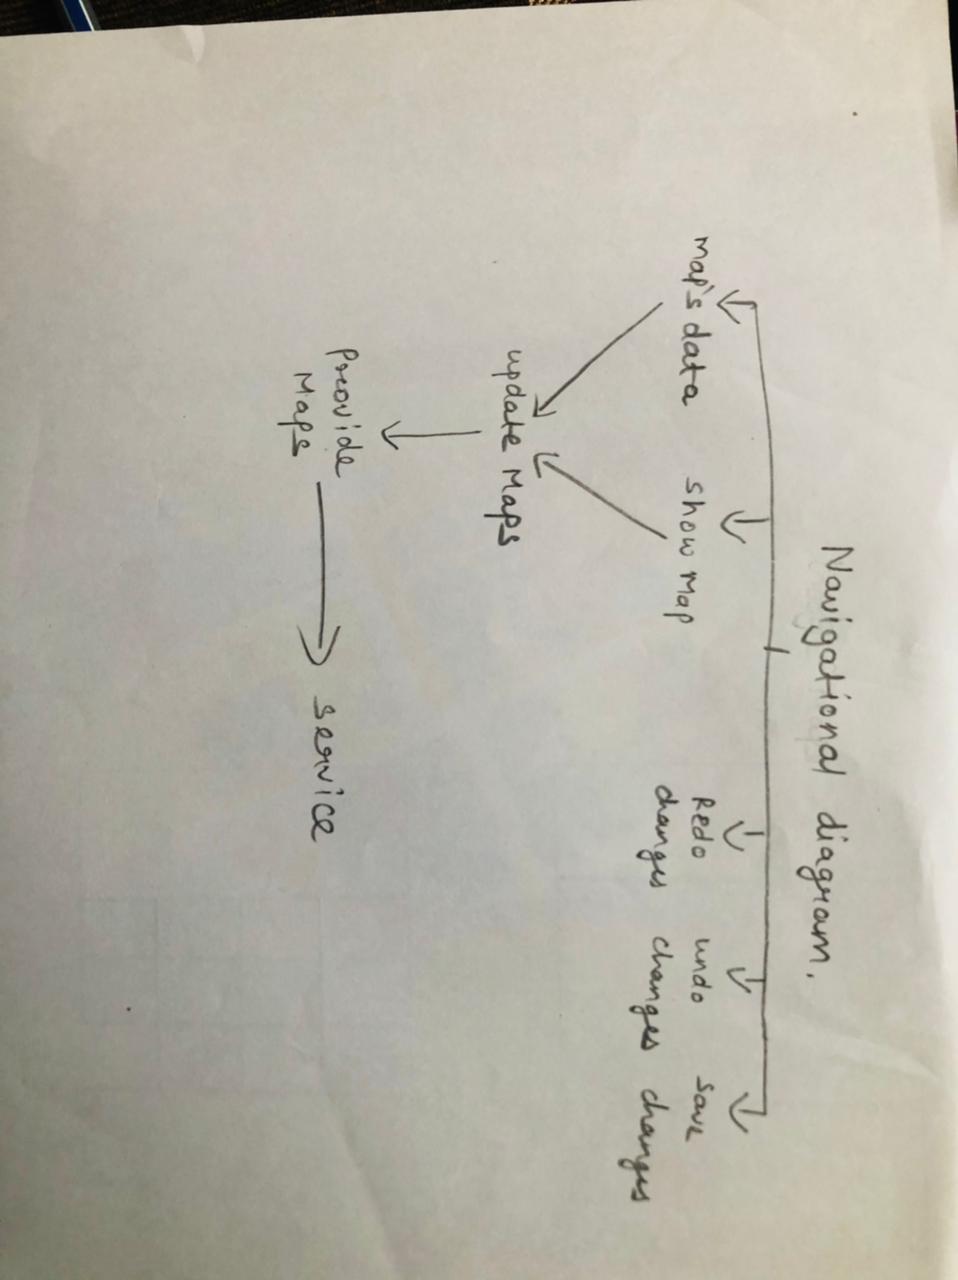 Navigational diagram.
Map's data
show Map
Redo
changes
undo
changes
save
changes
update Maps
Provide
Maps
service